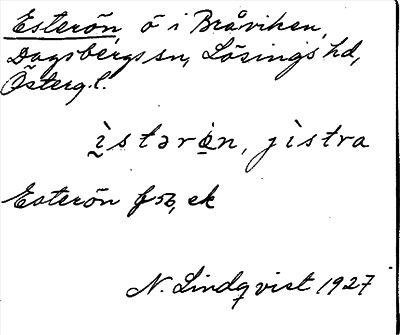 Esterön, ö i Bråviken,
Dagsbergs sn, Lösings hd,
Österg.l.
ìstərö̀n, jìstra
Esterön f 50, ek
N. Lindqvist 1927